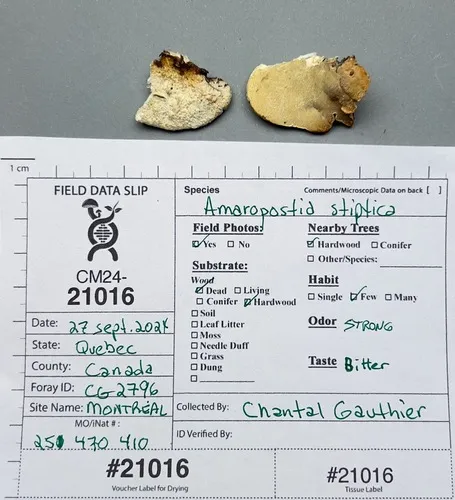 1 cm
FIELD DATA SLIP
CM24-
21016
Date: 27 sept. 2024
State: Quebec
County: Canada
Foray ID: CG2796
Site Name: MONTRÉAL
MO/iNat # :
250 470 410
Species
Comments/Microscopic Data on back [ ]
Amaropostia stiptica
Field Photos:
☑ Yes ☐ No
Substrate:
Wood
☑ Dead ☐ Living
☐ Conifer ☑ Hardwood
☐ Soil
☐ Leaf Litter
☐ Moss
☐ Needle Duff
☐ Grass
☐ Dung
☐
Nearby Trees
☑ Hardwood ☐ Conifer
☐ Other/Species:
Habit
☐ Single ☑ Few ☐ Many
Odor STRONG
Taste Bitter
Collected By: Chantal Gauthier
ID Verified By:
#21016
Voucher Label for Drying
#21016
Tissue Label